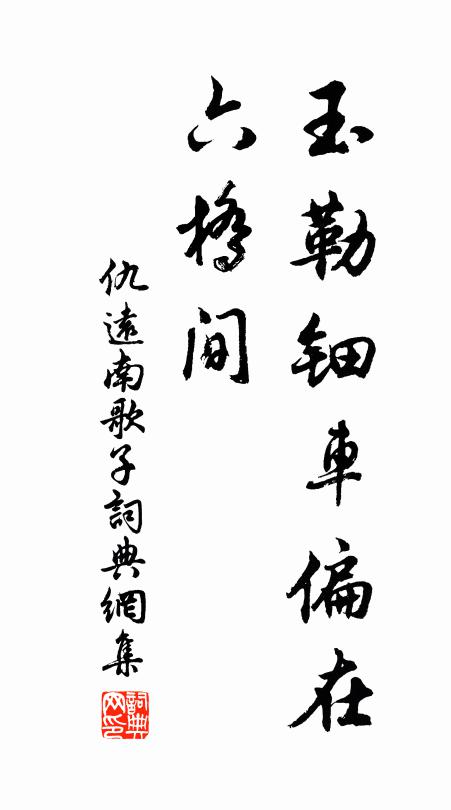 玉勒钿車偏在
六橋间
仇遠南歌子詞典網集
詞典网印